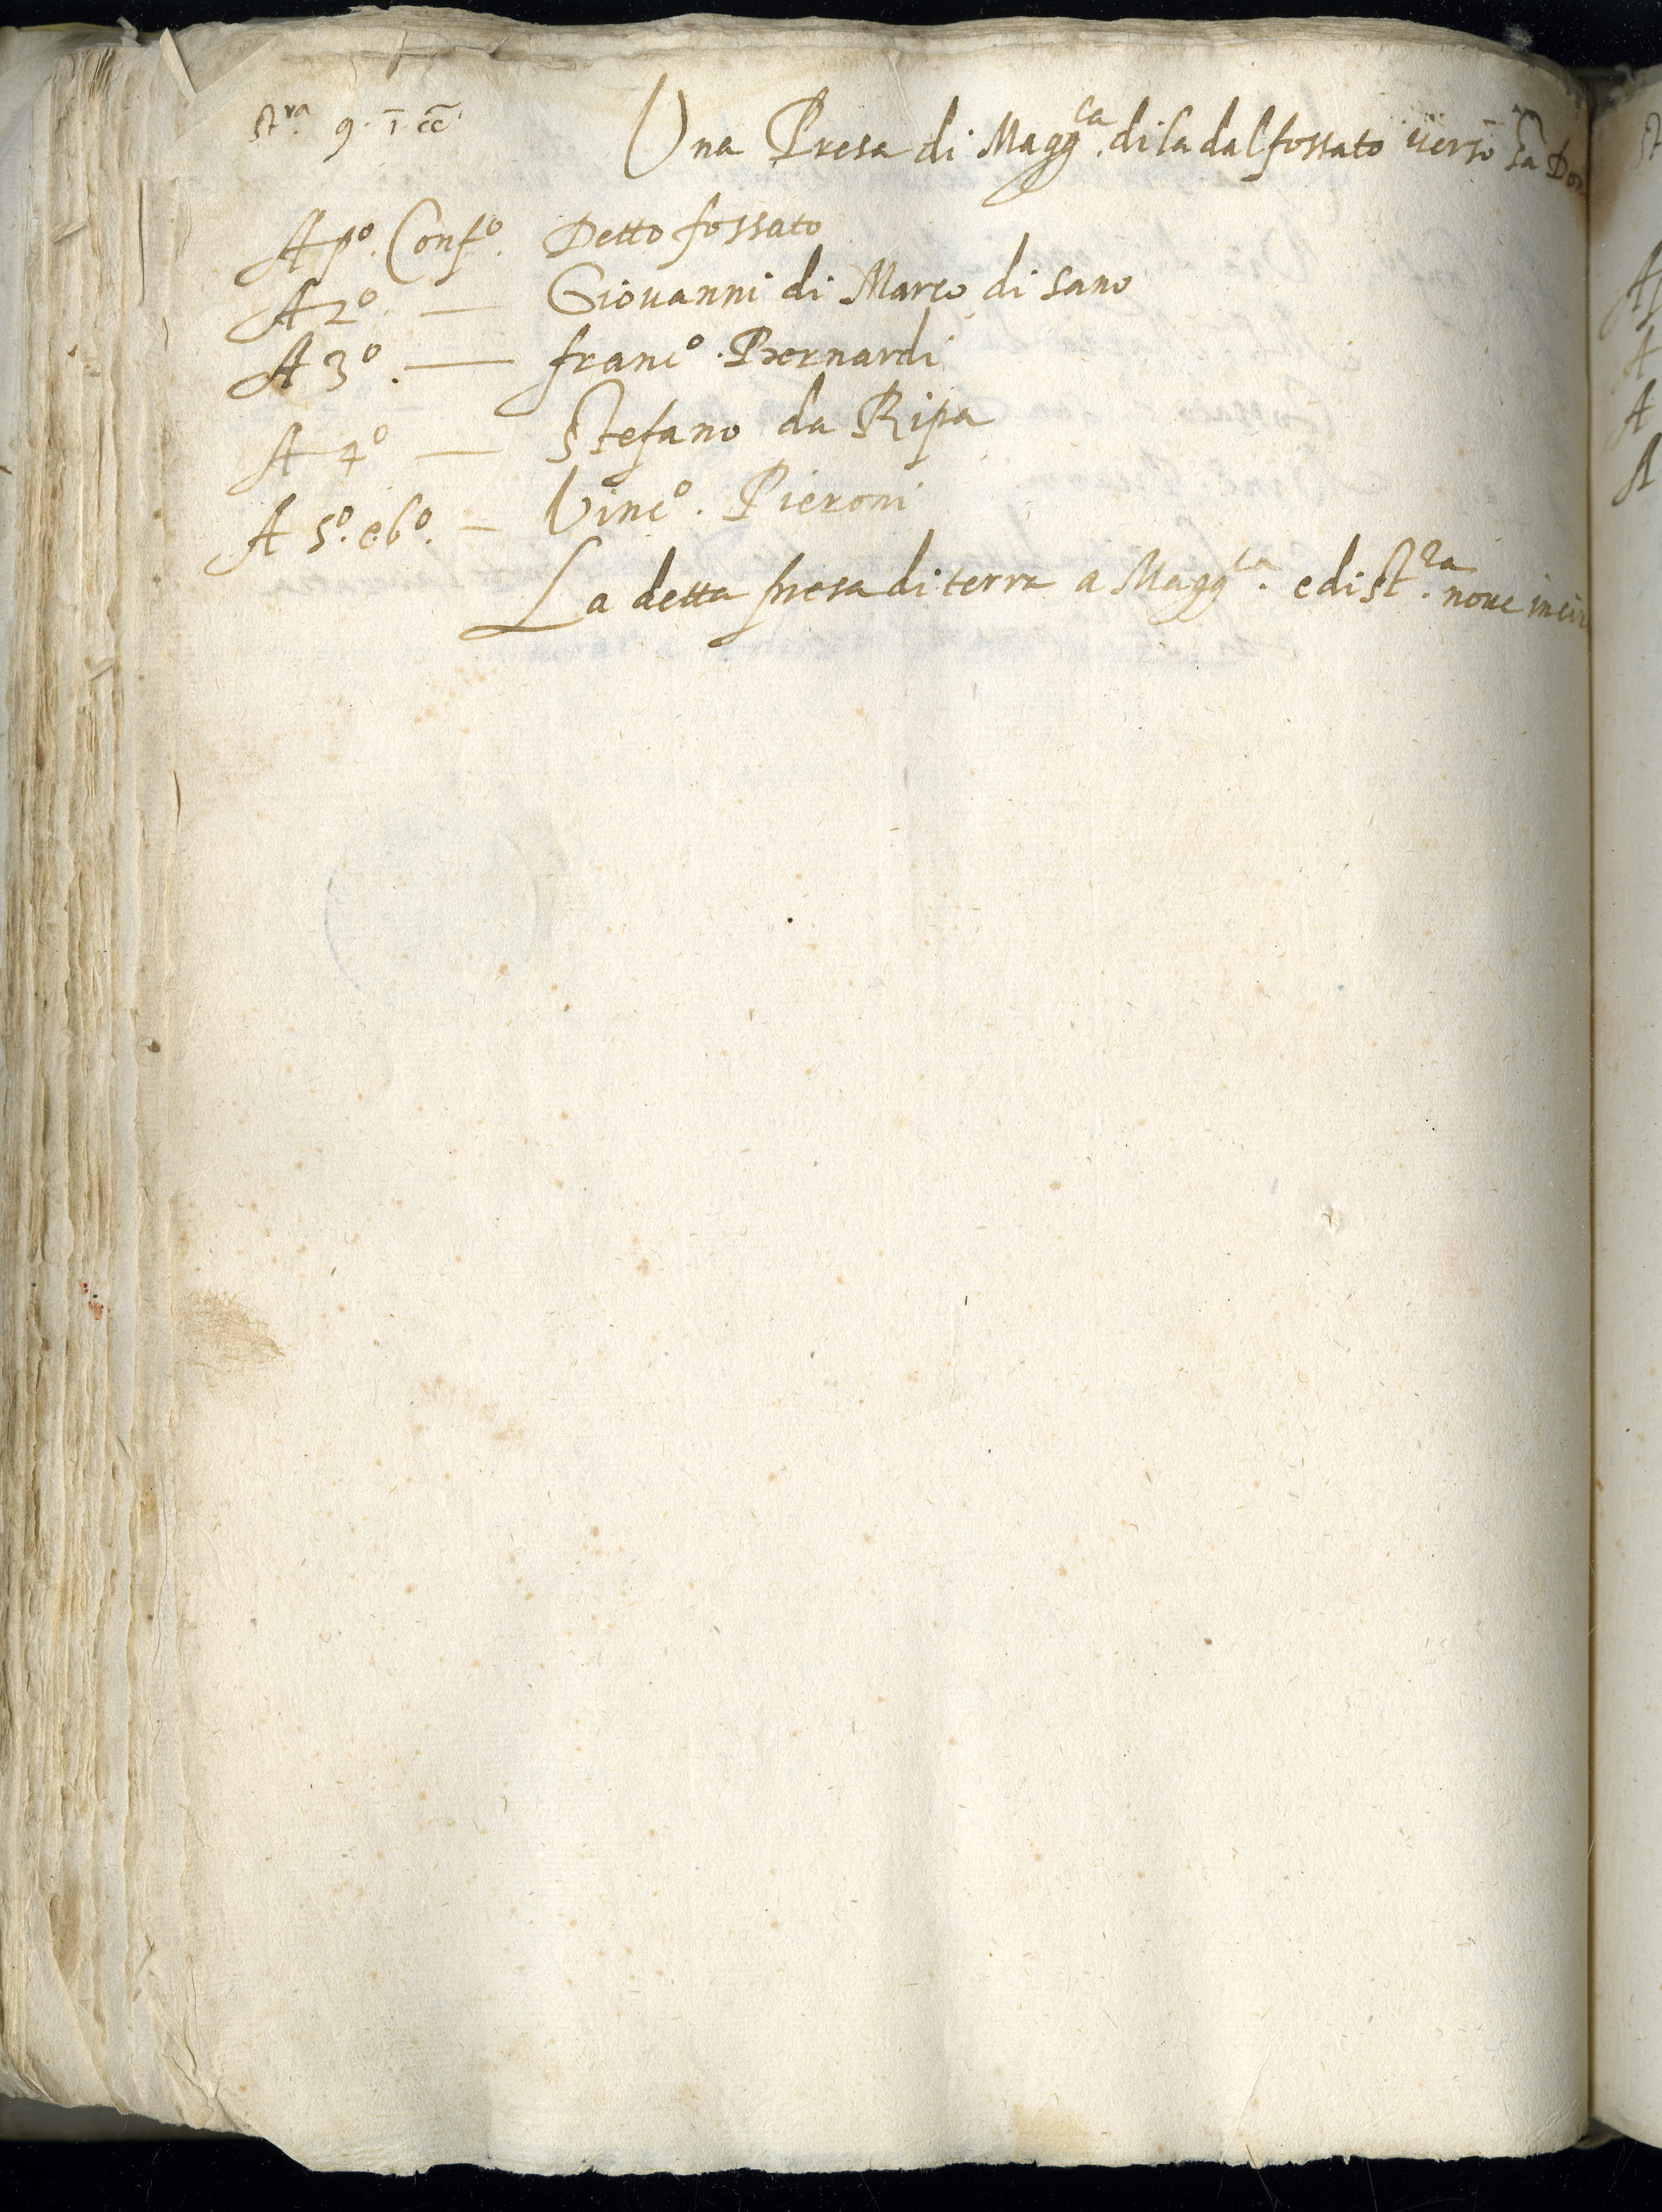 st.ra 9. i cc.
Una Presa di Magg.ca di la dal fossato verso la
A p.o Conf.o Detto fossato
A 2.o — Giovanni di Marco di sano
A 3.o — franc.o Bernardi
A 4.o — Stefano da Ripa
A 5.o e 6.o — Vinc.o Pieroni
La detta presa di terra a Magg.ca e di st.ra nove